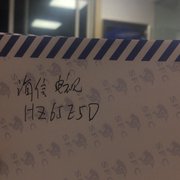 海信 电视
HZ65E5D